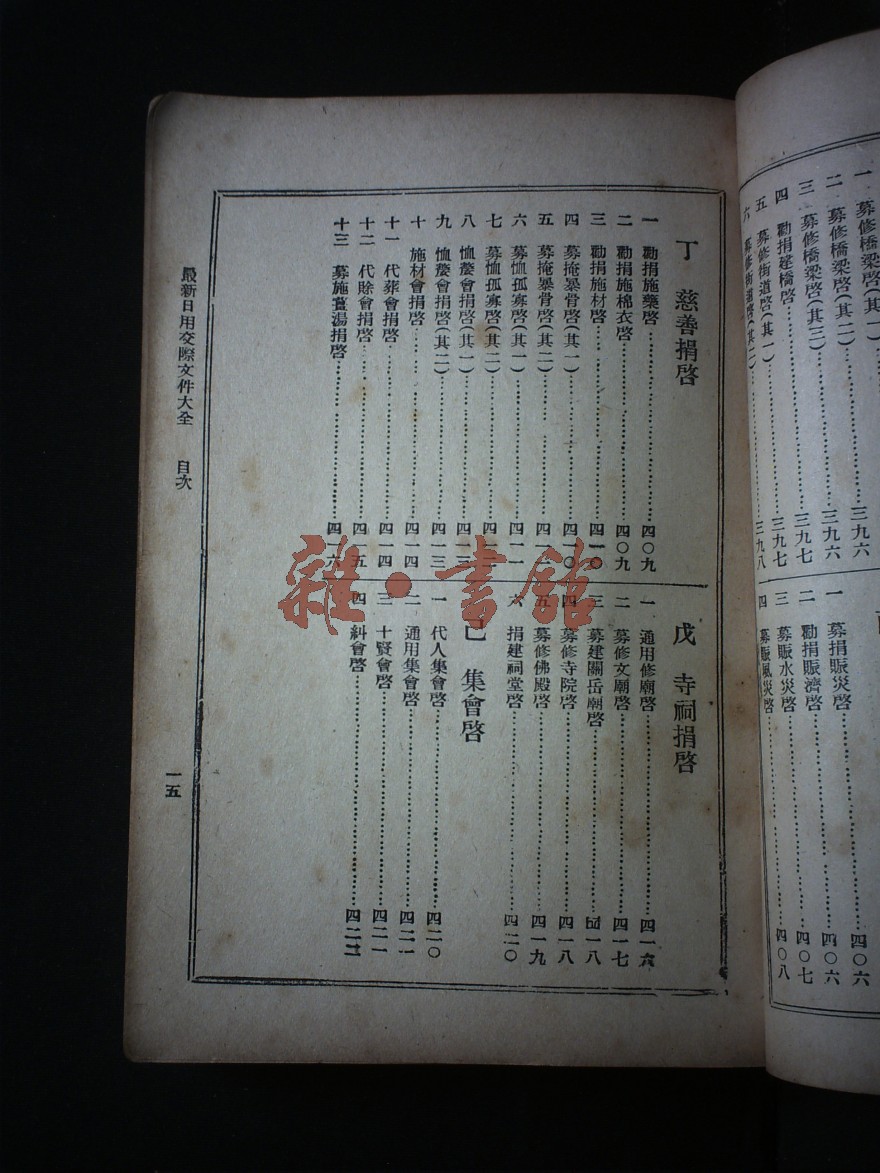 一 募修橋梁啓(其一)
二 募修橋梁啓(其二)……三九六
三 募修橋梁啓(其三)……三九六
四 勸捐建橋啓……三九七
五 募修街道啓(其一)……三九七
六 募修街道啓(其二)……三九八
一 募捐賑災啓……四〇六
二 勸捐賑濟啓……四〇六
三 募賑水災啓……四〇七
四 募賑風災啓……四〇八
丁 慈善捐啓
一 勸捐施藥啓……四〇九
二 勸捐施棉衣啓……四〇九
三 勸捐施材啓……四一〇
四 募掩暴骨啓(其一)……四一〇
五 募掩暴骨啓(其二)……四一一
六 募恤孤寡啓(其一)……四一一
七 募恤孤寡啓(其二)……四一二
八 恤嫠會捐啓(其一)……四一三
九 恤嫠會捐啓(其二)……四一三
十 施材會捐啓……四一四
十一 代葬會捐啓……四一四
十二 代賒會捐啓……四一五
十三 募施薑湯捐啓……四一六
戊 寺祠捐啓
一 通用修廟啓……四一六
二 募修文廟啓……四一七
三 募建關岳廟啓……四一八
四 募修寺院啓……四一八
五 募修佛殿啓……四一九
六 捐建祠堂啓……四二〇
己 集會啓
一 代人集會啓……四二〇
二 通用集會啓……四二一
三 十賢會啓……四二一
四 糾會啓……四二二
最新日用交際文件大全 目次
一五
雜·書館